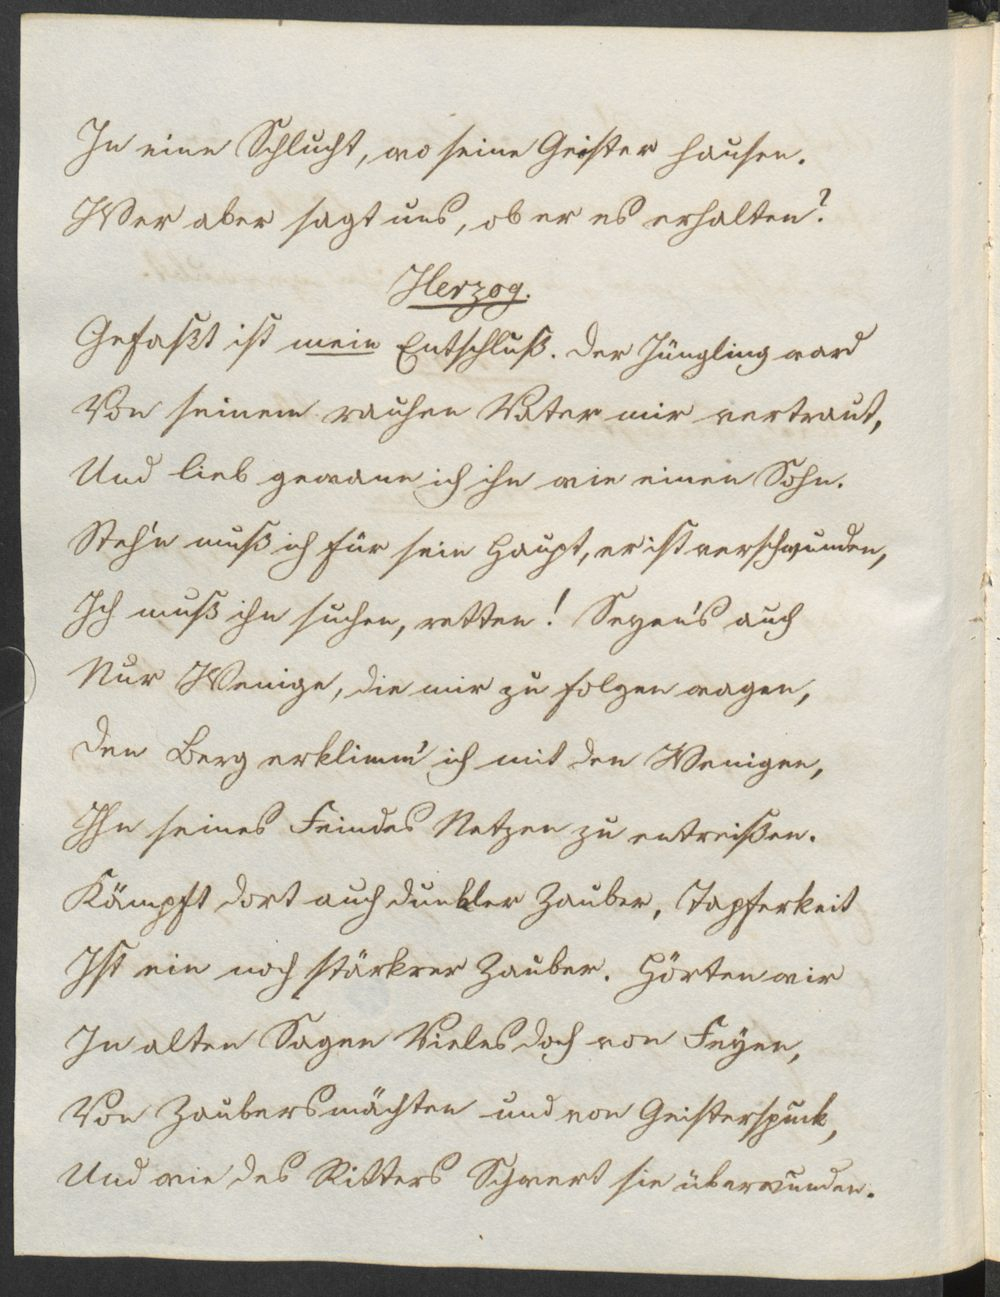 In eine Schlucht, wo seine Geister hausen.
Wer aber sagt uns, ob er es erhalten?
Herzog.
Gefaßt ist mein Entschluß. Der Jüngling ward
Von seinem rauhen Vater mir vertraut,
Und lieb gewann ich ihn wie einen Sohn.
Steh'n muß ich für sein Haupt, er ist verschwunden,
Ich muß ihn suchen, retten! Seyen's auch
Nur Wenige, die mir zu folgen wagen,
Den Berg erklimm' ich mit den Wenigen,
Ihn seines Feindes Netzen zu entreißen.
Kämpft dort auch dunkler Zauber, Tapferkeit
Ist ein noch stärkrer Zauber. Hörten wir
In alten Sagen Vieles doch von Feyen,
Von Zaubersmächten und von Geisterspuck,
Und wie des Ritters Schwert sie überwunden.